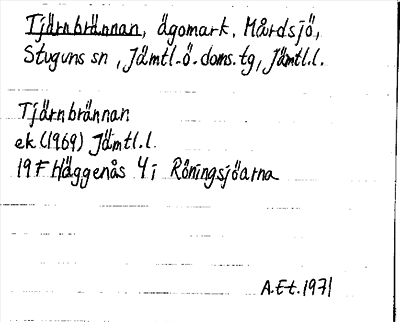 Tjärnbrännan, ägomark, Mårdsjö,
Stuguns sn, Jämtl.ö.doms.tg, Jämtl.l.
Tjärnbrännan
ek.(1969) Jämtl.l.
19 F Häggenås 4 i Röningsjöarna
A.Et.1971